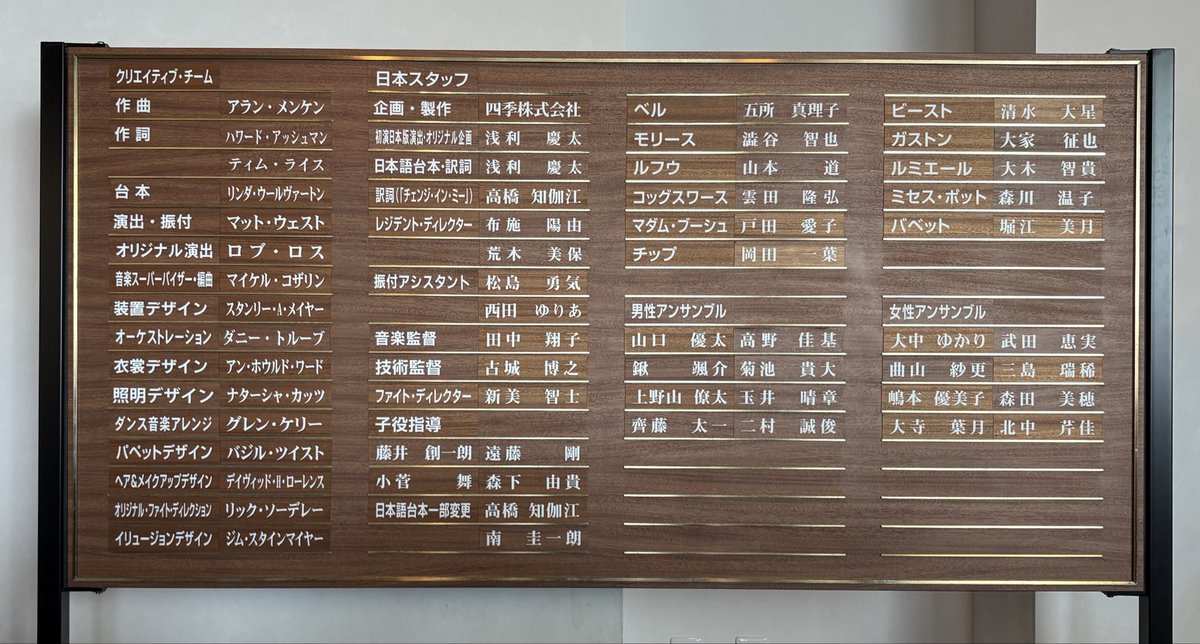 クリエイティブ・チーム
作 曲 アラン・メンケン
作 詞 ハワード・アッシュマン
ティム・ライス
台 本 リンダ・ウールヴァートン
演出・振付 マット・ウェスト
オリジナル演出 ロブ・ロス
音楽スーパーバイザー・編曲 マイケル・コザリン
装置デザイン スタンリー・A・メイヤー
オーケストレーション ダニー・トルーブ
衣裳デザイン アン・ホウルド・ワード
照明デザイン ナターシャ・カッツ
ダンス音楽アレンジ グレン・ケリー
パペットデザイン バジル・ツイスト
ヘア&メイクアップデザイン デイヴィッド・H・ローレンス
オリジナル・ファイト・ディレクション リック・ソーデレー
イリュージョンデザイン ジム・スタインマイヤー
日本スタッフ
企画・製作 四季株式会社
初演日本版演出・オリジナル企画 浅利 慶太
日本語台本・訳詞 浅利 慶太
訳詞(「チェンジ・イン・ミー」) 高橋 知伽江
レジデント・ディレクター 布施 陽由
荒木 美保
振付アシスタント 松島 勇気
西田 ゆりあ
音楽監督 田中 翔子
技術監督 古城 博之
ファイト・ディレクター 新美 智士
子役指導
藤井 創一朗 遠藤 剛
小菅 舞 森下 由貴
日本語台本一部変更 高橋 知伽江
南 圭一朗
ベル 五所 真理子
モリース 澁谷 智也
ルフウ 山本 道
コッグスワース 雲田 隆弘
マダム・ブーシュ 戸田 愛子
チップ 岡田 一葉
男性アンサンブル
山口 優太 高野 佳基
鍬 颯介 菊池 貴大
上野山 僚太 玉井 晴章
齊藤 太一 二村 誠俊
ビースト 清水 大星
ガストン 大家 征也
ルミエール 大木 智貴
ミセス・ポット 森川 温子
バベット 堀江 美月
女性アンサンブル
大中 ゆかり 武田 恵実
曲山 紗更 三島 瑞稀
嶋本 優美子 森田 美穂
大寺 葉月 北中 芹佳